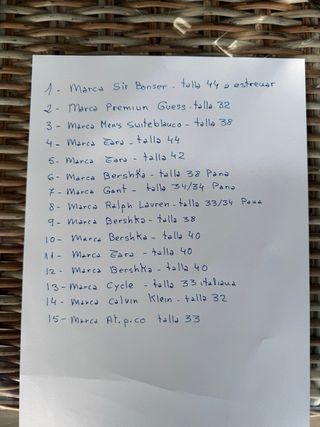 1- Marca Sir Bonser - talla 44 a estrenar
2- Marca Premiun Guess - talla 32
3- Marca Men's Suiteblauco - talla 38
4- Marca Zara - talla 44
5- Marca Zara - talla 42
6- Marca Bershka - talla 38 Pana
7- Marca Gant - talla 34/34 Pana
8- Marca Ralph Lauren - talla 33/34 Pana
9- Marca Bershka - talla 38
10- Marca Bershka - talla 40
11- Marca Zara - talla 40
12- Marca Bershka - talla 40
13- Marca Cycle - talla 33 italiana
14- Marca Calvin Klein - talla 32
15- Marca At.p.co talla 33